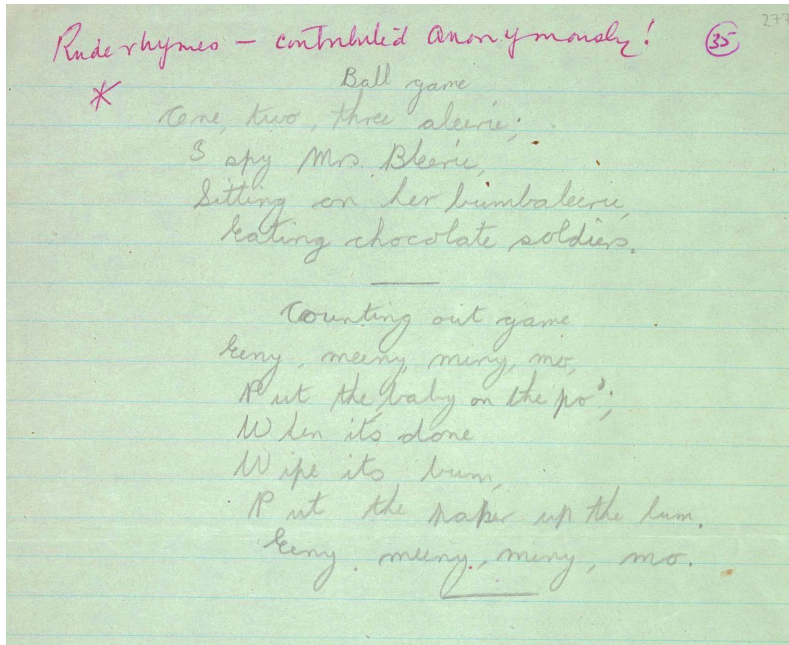 277
Rude rhymes — contributed anonymously! 35
*
Ball game
One, two, three aleerie;
I spy Mrs Bleerie,
Sitting on her bumbaleerie,
Eating chocolate soldiers.
Counting out game
Eeny, meeny, miny, mo,
Put the baby on the po';
When its done
Wipe its bum,
Put the paper up the lum.
Eeny, meeny, miny, mo.